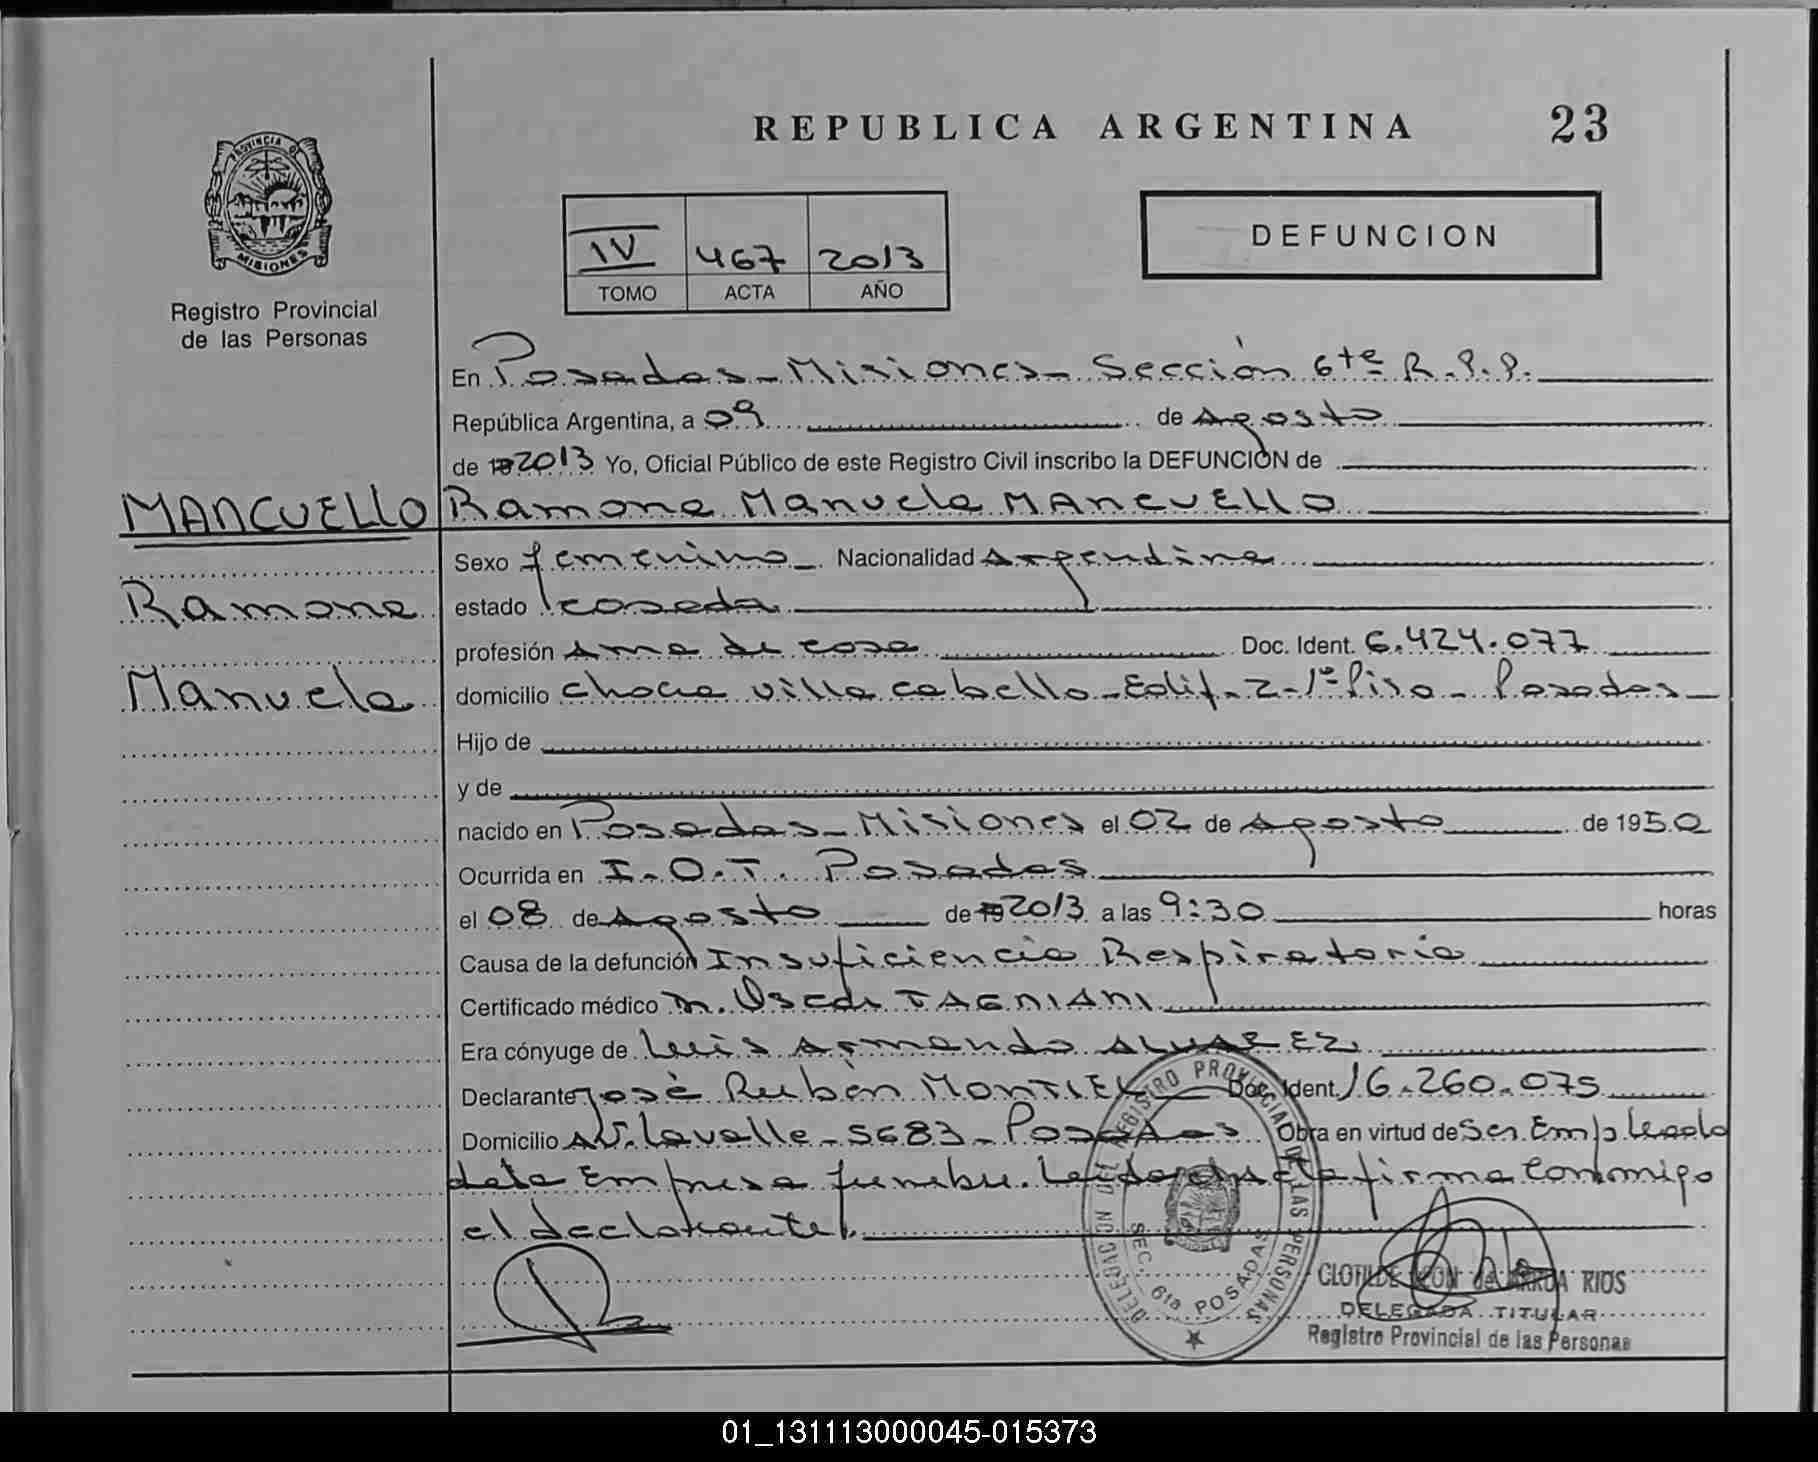 REPUBLICA ARGENTINA 23
PROVINCIA DE
MISIONES
Registro Provincial
de las Personas
IV 467 2013
TOMO ACTA AÑO
DEFUNCION
En Posadas - Misiones - Sección 6te R.P.P.
República Argentina, a 09 de Agosto
de 19 2013 Yo, Oficial Público de este Registro Civil inscribo la DEFUNCION de
MANCUELLO Ramona Manuela MANCUELLO
Sexo femenino Nacionalidad Argentina
Ramona estado casada
profesión Ama de casa Doc. Ident. 6.424.077
Manuela domicilio Villa cabello - Edif. 2 - 1º Piso - Posadas
Hijo de
y de
nacido en Posadas - Misiones el 02 de Agosto de 1950
Ocurrida en I.O.T. Posadas
el 08 de Agosto de 19 2013 a las 9:30 horas
Causa de la defunción Insuficiencia Respiratoria
Certificado médico Oscar TAGNIANI
Era cónyuge de Luis Armando ALVAREZ
Declarante José Rubén MONTIEL Doc. Ident. 16.260.075
Domicilio Av. Lavalle - 5683 - Posadas Obra en virtud de Ser Empleado
de la Empresa funebre. Leida el acta firma conmigo
el declarante.
DELEGACION DEL REGISTRO PROVINCIAL DE LAS PERSONAS
SEC. 6ta POSADAS
CLOTILDE RIOS
DELEGADA TITULAR
Registro Provincial de las Personas
01_131113000045-015373